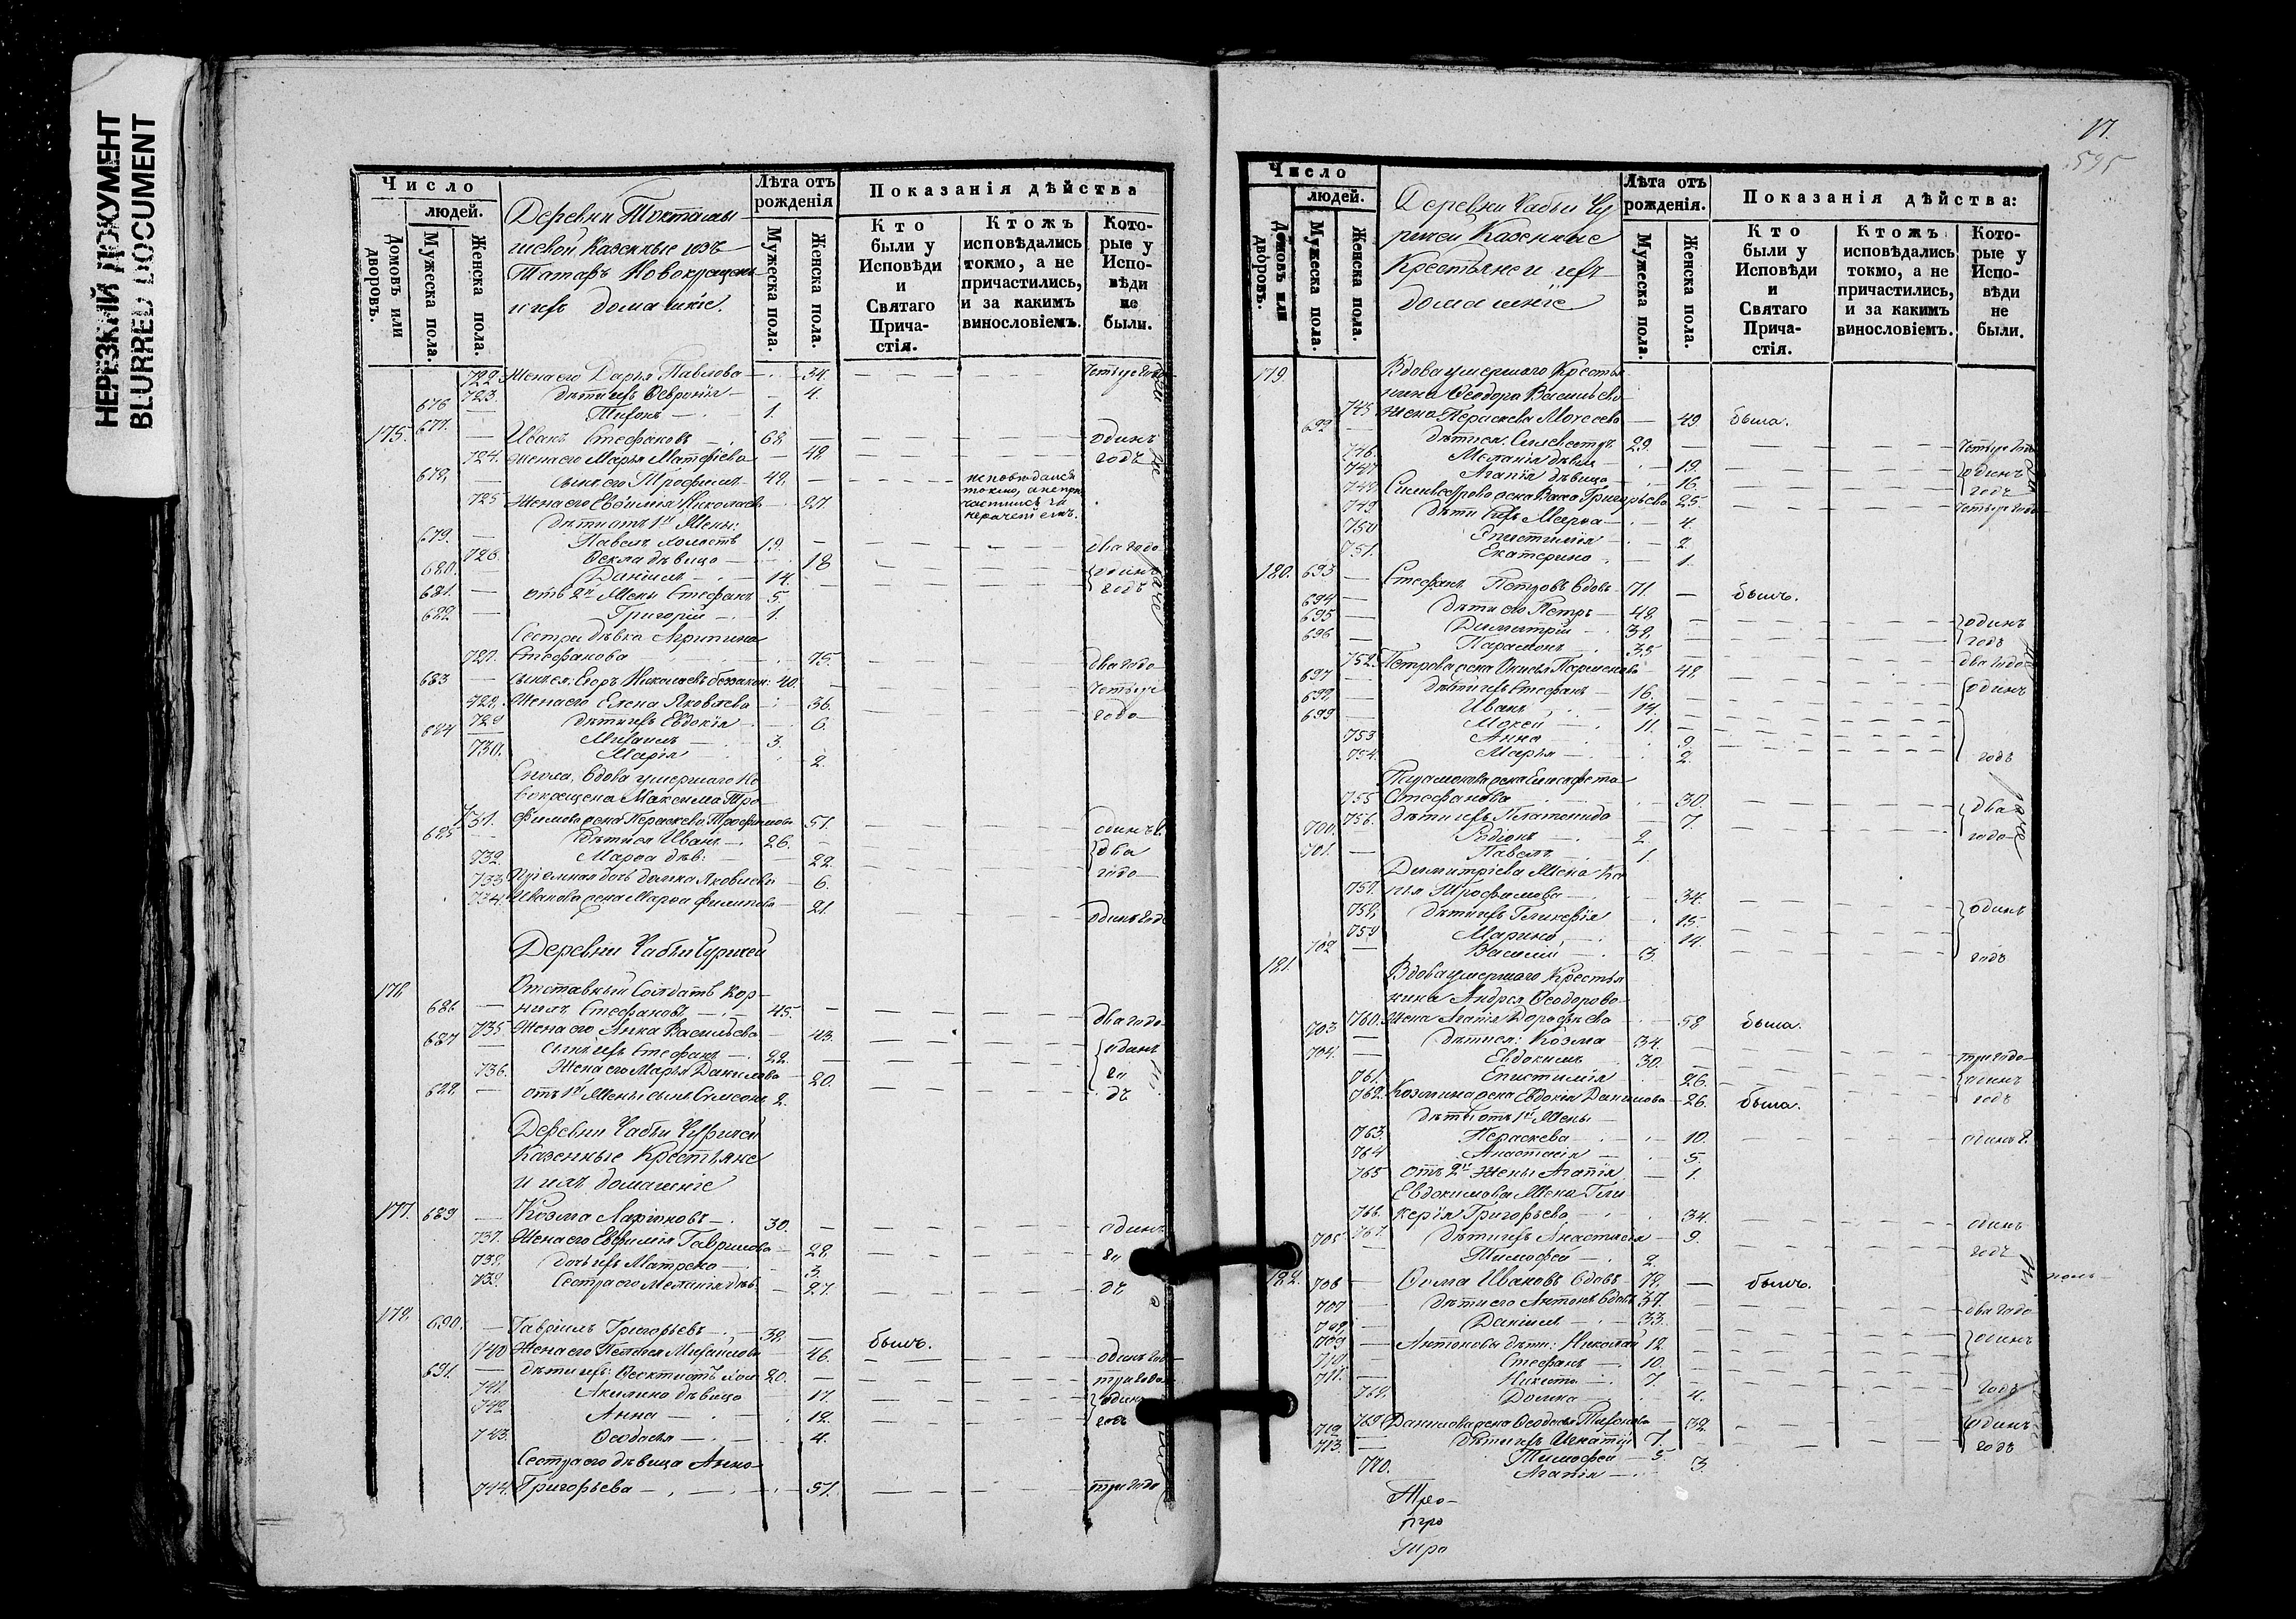 НЕРЕЗКИЙ ДОКУМЕНТ
BLURRED DOCUMENT
Число
людей.
Домовъ или дворовъ.
Мужеска пола.
Женска пола.
Деревни
шевой Казенные изъ
Татаръ Новокрещены
и ихъ домашніе.
Лѣта отъ рожденія
Мужеска пола.
Женска пола.
Показанія дѣйства
Кто были у Исповѣди и Святаго Прича-стія.
Ктожъ исповѣдались токмо, а не причастились, и за какимъ винословіемъ.
Кото-рые у Испо-вѣди не были.
722 Жена его Дарья Павлова 34. четыре года
723. дѣти ихъ Феврония 4.
676 Тихонъ 1.
175. 677. Иванъ Стефановъ 68. одинъ
724. Жена его Марья Матвѣева 49 годъ
678, сынъ его Трофимъ 48, исповѣдался токмо, а не при
725 Жена его Евфимія Николаева 27.
Дѣти отъ 1й Жены:
679. Павелъ холостъ 19. два года
726. Фекла дѣвица 18
680. Даніилъ 14. одинъ
681. отъ 2й Жены Стефанъ 5. годъ
682 Григорій 1.
Сестра дѣвка Агрипина
727. Стефанова 75. два года
683 сынъ ея: Егоръ Николаевъ 40. четыре
728. Жена его Елена Яковлева 36. года
729 дѣти ихъ Евдокія 6.
684 Михаилъ 3.
730. Марія 2.
Сноха, вдова умершаго Но
вокрещена Максима Тро
731. фимова жена Параскева Трофимова 51. одинъ г.
685 дѣти ея Иванъ 26. два
732. Марѳа дѣв: 22. года
733 дочь Домна Яковлева 6.
734. Иванова жена Марѳа Филипова 21. одинъ годъ
Деревни Чабьи Чурчей
176 Отставный Солдатъ Кор-
686 нилъ Стефановъ 45. два года
735. Жена его Анна Васильева 43.
687 сынъ ихъ Стефанъ 22. одинъ
736. Жена его Марья Данилова 20. го
688. отъ 1й Жены сынъ Симеонъ 2. дъ
Деревни Чабьи Чурчей
Казенные Крестьяне
и ихъ домашніе
177. 689 Козма Ларіоновъ 30. одинъ
737. Жена его Евфимія Гаврилова 28. го
738. дочь ихъ Матрена 3.
739. Сестра его Меланія дѣв. 27. дъ
178. 690. Гавріилъ Григорьевъ 38. былъ.
740 Жена его Пелагея Михайлова 46. одинъ годъ
691. дѣти ихъ: Феоктистъ хол. 20. три года
741. Акилина дѣвица 17. одинъ
742 Анна 12. годъ
743. Феодосья 4.
Сестра его дѣвица Анна
744. Григорьева 51. три года
17.
595
Число
людей.
Домовъ или дворовъ.
Мужеска пола.
Женска пола.
Деревни Чабьи Чу
рчей Казенные
Крестьяне и ихъ
домашніе
Лѣта отъ рожденія.
Мужеска пола.
Женска пола.
Показанія дѣйства:
Кто были у Исповѣди и Святаго Прича-стія.
Ктожъ исповѣдались токмо, а не причастились, и за какимъ винословіемъ.
Кото-рые у Испо-вѣди не были.
179. Вдова умершаго Крестья
нина Феодора Васильева
745 жена Параскева Моисеева 49 была.
692 дѣти ея: Силвестръ 29. четыре года
746. Меланія дѣвица 19. одинъ
747 Агапія дѣвица 16. годъ
748. Силвестрова жена Васса Григорьева 25. четыре года
749. дѣти ихъ Марѳа 4.
750 Епистимія 2.
751. Екатерина 1.
180. 693 Стефанъ Петровъ вдовъ 71. былъ.
694 дѣти его Петръ 48 одинъ
695 Димитрій 38, годъ
696 Парамонъ 35 два года
752. Петрова жена Парменова 48. одинъ
697 дѣти ихъ Стефанъ 16.
698 Иванъ 14.
699 Мокей 11.
753 Анна 9.
754. Марья 2. годъ
Парамонова жена Елисавета
755 Стефанова 30. два
756. дѣти ихъ Платонида 7. года
700. Родіонъ 2.
701. Павелъ 1.
Димитріева Жена Ксе
757. нія Трофимова 34. одинъ
758, дѣти ихъ Гликерія 15.
759 Марина 14.
702 Василій 3. годъ
181. Вдова умершаго Крестья
нина Андрея Феодорова
760. Жена Агапія Дорофеева 58 была.
703 дѣти ея: Козма 34.
704. Евдокимъ 30. три года
761. Епистимія 26. одинъ
762. Козмина жена Евдокія Данилова 26. была. годъ
дѣти отъ 1й Жены
763. Параскева 10. одинъ г.
764 Анастасія 5.
765 отъ 2й Жены Агапія 1.
Евдокимова Жена Гли
766. керія Григорьева 34. одинъ
767. дѣти ихъ Анастасія 9.
705 Тимофей 2. годъ
182. 706 Фома Ивановъ вдовъ 78, былъ.
707 дѣти его Антонъ вдовъ 37. два года
708 Даніилъ 33.
709 Антоновы дѣти: Николай 12. одинъ
710. Стефанъ 10.
711. Никита 7.
768. Домна 4. годъ
769. Данилова жена Феодосья Тихонова 32. одинъ
712 дѣти ихъ Игнатій 7.
713. Тимофей 5. годъ
770. Агапія 3.